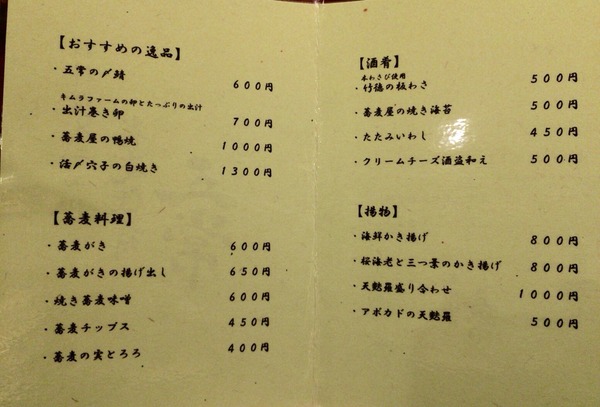 【おすすめの逸品】
・五常の〆鯖 600円
キムラファームの卵とたっぷりの出汁
・出汁巻き卵 700円
・蕎麦屋の鴨焼 1000円
・活〆穴子の白焼き 1300円
【蕎麦料理】
・蕎麦がき 600円
・蕎麦がきの揚げ出し 650円
・焼き蕎麦味噌 600円
・蕎麦チップス 450円
・蕎麦の実とろろ 400円
【酒肴】
本わさび使用
・竹徳の板わさ 500円
・蕎麦屋の焼き海苔 500円
・たたみいわし 450円
・クリームチーズ酒盗和え 500円
【揚物】
・海鮮かき揚げ 800円
・桜海老と三つ葉のかき揚げ 800円
・天麩羅盛り合わせ 1000円
・アボカドの天麩羅 500円